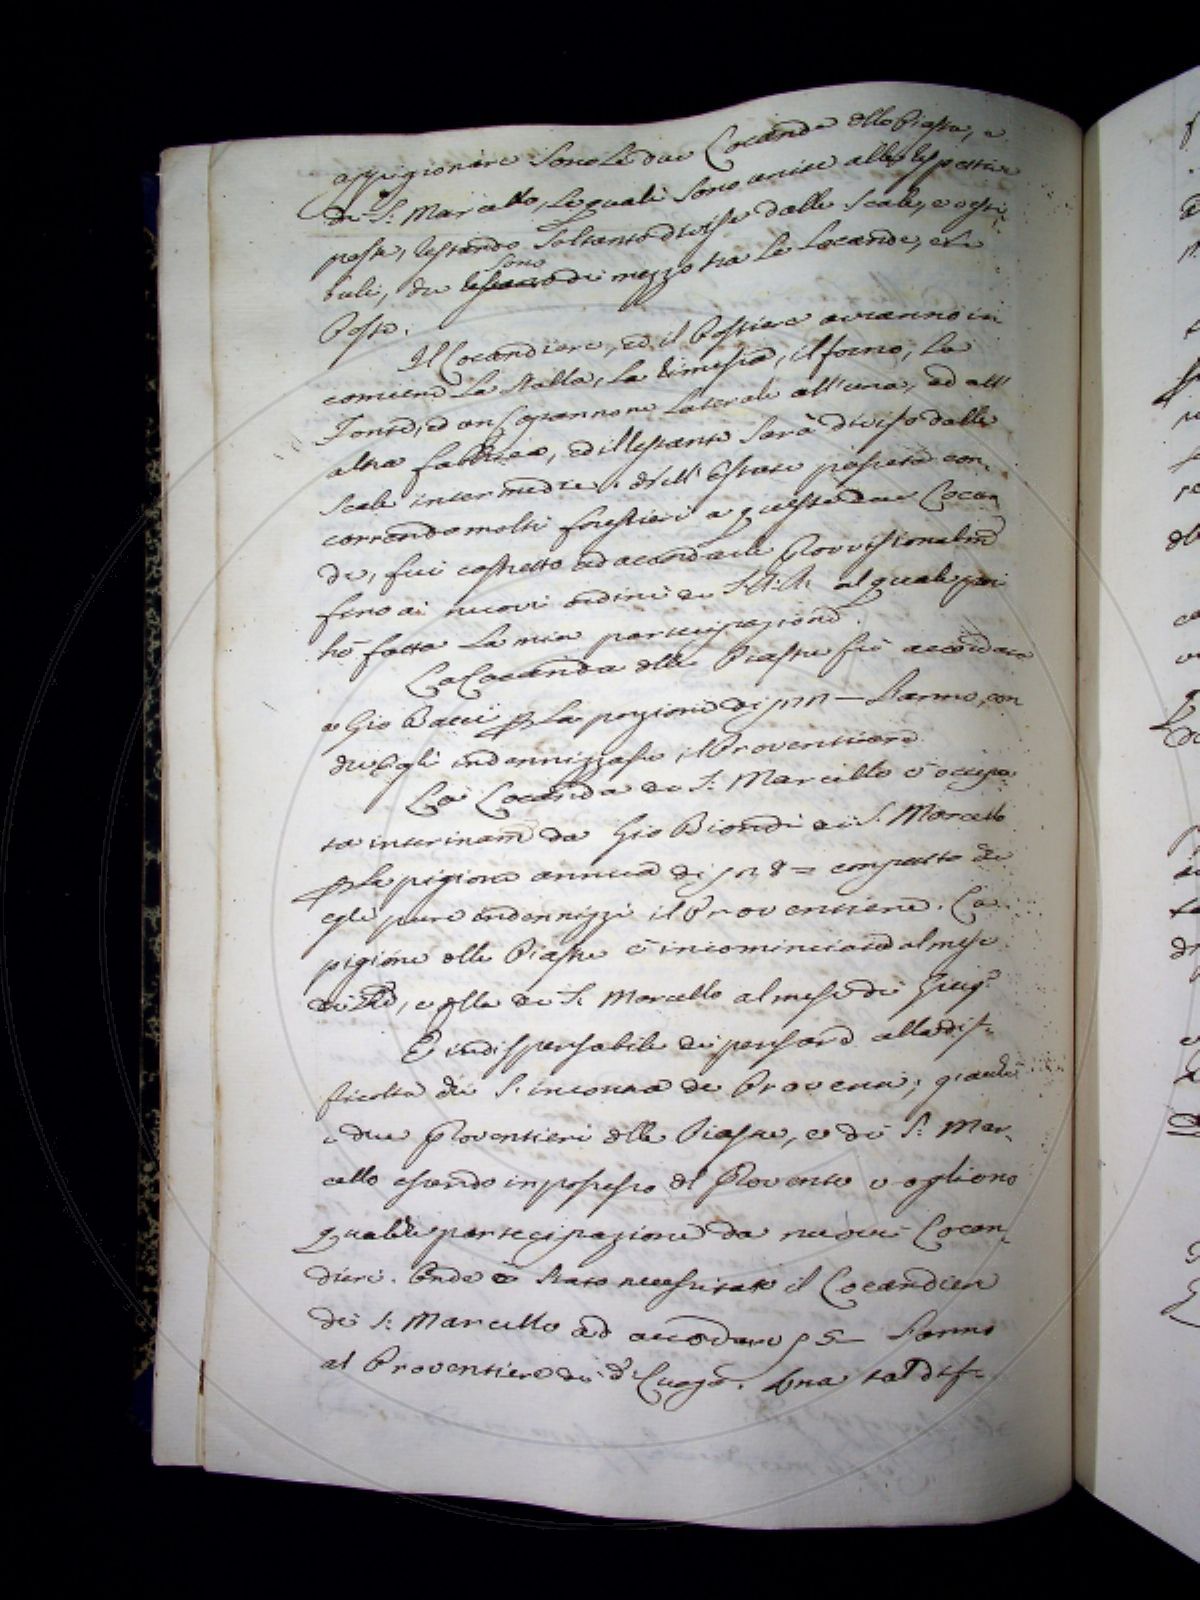 appigionare sono le due Locande delle Piastre, e
di S. Marcello, le quali sono unite alle respettive
poste, restando soltanto divise dalle Scale, e vesti-
buli, che sono di mezzo tra le Locande, e le
Poste.
Il Locandiere, ed il Postiere avranno in
comune la Stalla, la Rimessa, il forno, la
Fonte, ed un Capannone laterale all'una, ed all'
altra fabbrica, ed il restante sarà diviso dalle
Scale intermedie. Nell'Estate passata con-
correndo molti forestieri a queste due Locan
de, fui costretto ad accordarle provvisionalm.e
fino ai nuovi ordini di S.A.R. al quale poi
hò fatta la mia partecipazione.
La Locanda delle Piastre fù accordata
a Gio Bacci p la pigione di l'anno, con
che egli indennizzasse il Proventiere.
La Locanda di S. Marcello è occupa-
ta interinam.e da Gio Biondi di S. Marcello
p la pigione annua di 8 = con patto che
egli pure indennizzi il Proventiere. La
pigione delle Piastre è incominciata al mese
di e q.lla di S. Marcello al mese di Giug.o
È indispensabile di pensare alla dif-
ficoltà che s'incontra de Proventi; giacchè
i due Proventieri delle Piastre, e di S. Mar-
cello essendo in possesso del Provento vogliono
qualche partecipazione da nuovi Locan-
dieri. Onde è stato necessitato il Locandiere
di S. Marcello ad accordare 5 – l'anno
al Proventiere di d.o Luogo. Una tal dif-